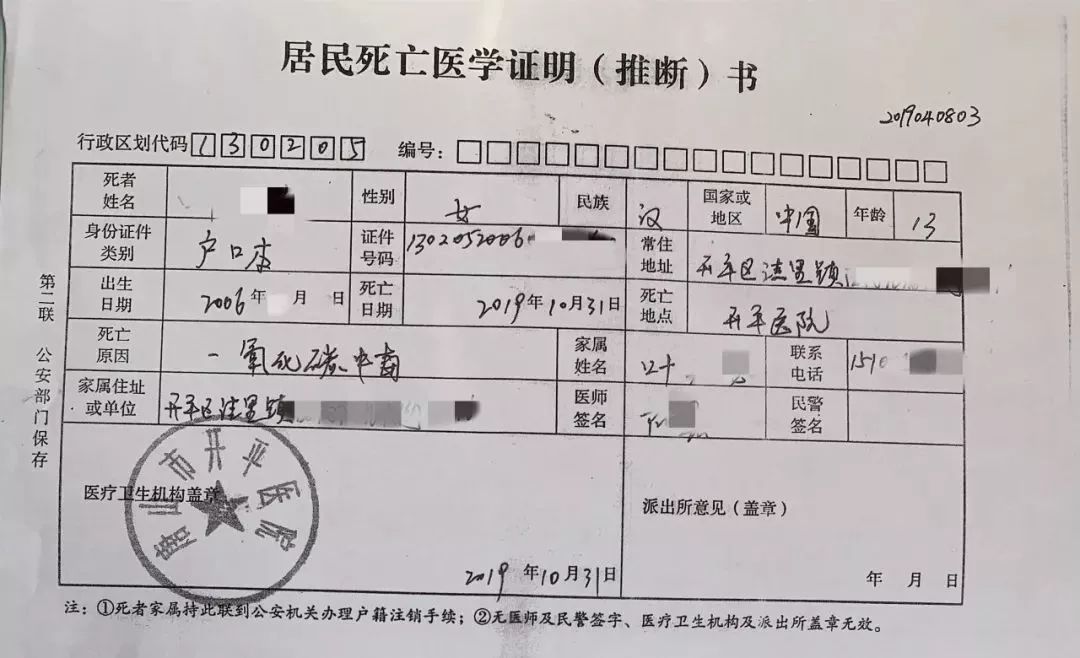 居民死亡医学证明（推断）书
2019040803
行政区划代码 130205 编号：
死者姓名 性别 女 民族 汉 国家或地区 中国 年龄 13
身份证件类别 户口本 证件号码 1302052006 常住地址 开平区洼里镇
出生日期 2006年 月 日 死亡日期 2019年10月31日 死亡地点 开平医院
死亡原因 一氧化碳中毒 家属姓名 联系电话 151
家属住址或单位 开平区洼里镇 医师签名 民警签名
医疗卫生机构盖章
唐山市开平医院
2019年10月31日
派出所意见（盖章）
年 月 日
第二联 公安部门保存
注：①死者家属持此联到公安机关办理户籍注销手续；②无医师及民警签字、医疗卫生机构及派出所盖章无效。